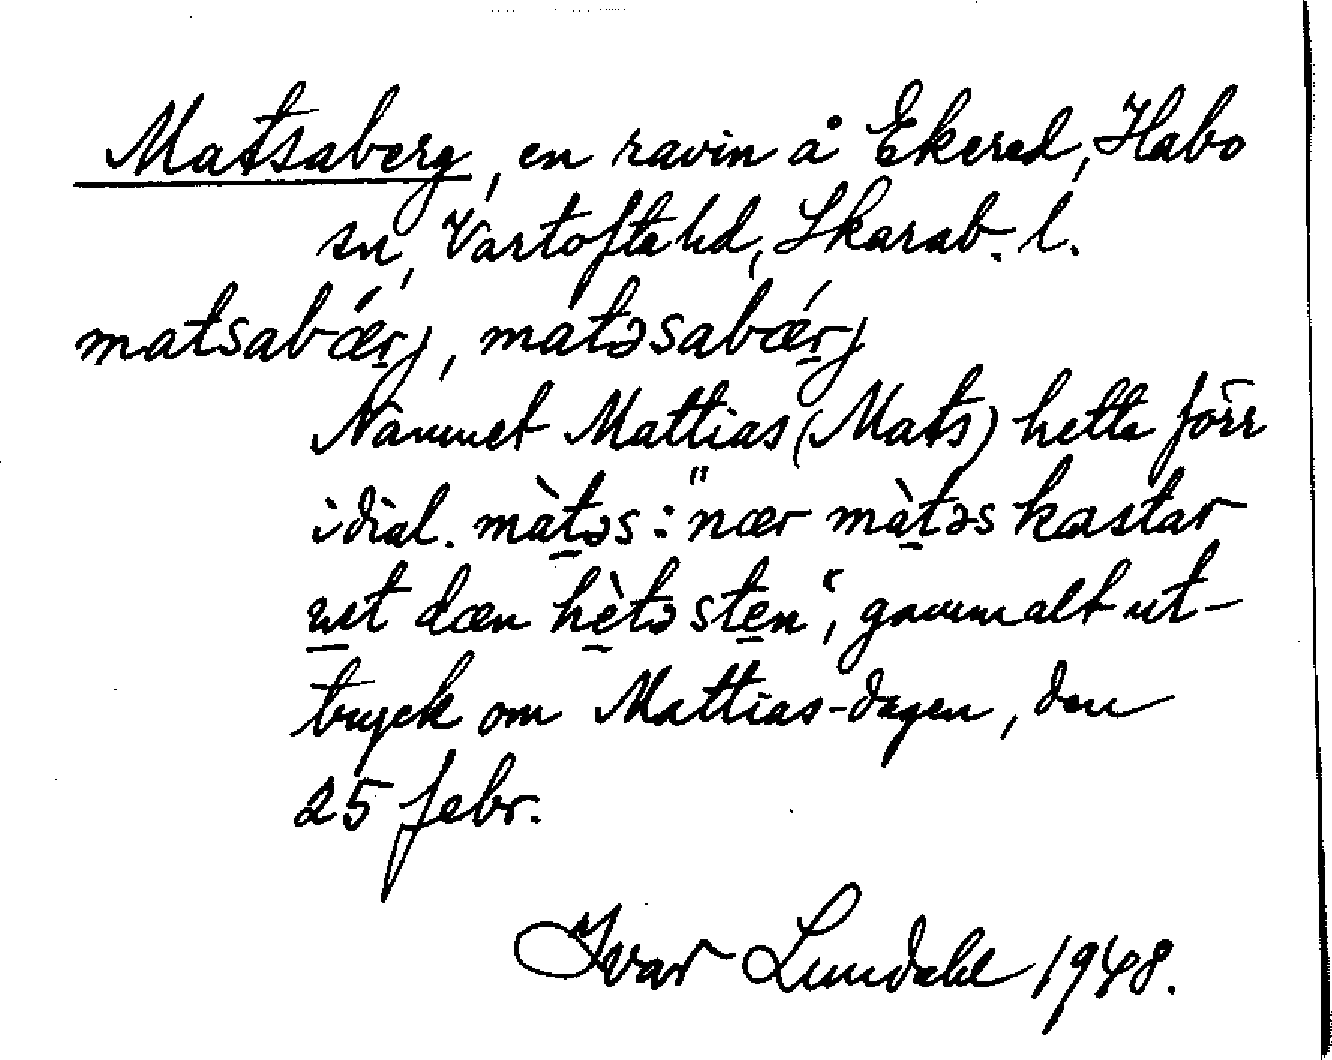 Matsaberg, en ravin å Ekered, Habo
sn, Vartofta hd, Skarab. l.
matsabǽr̠j, matəsabǽr̠j
Namnet Mattias (Mats) hette förr
i dial. màt̠əs: "nær màt̠əs kastar
u̠t dæn hè̠tə ste̠n", gammalt ut-
tryck om Mattias-dagen, den
25 febr.
Ivar Lundahl 1948.